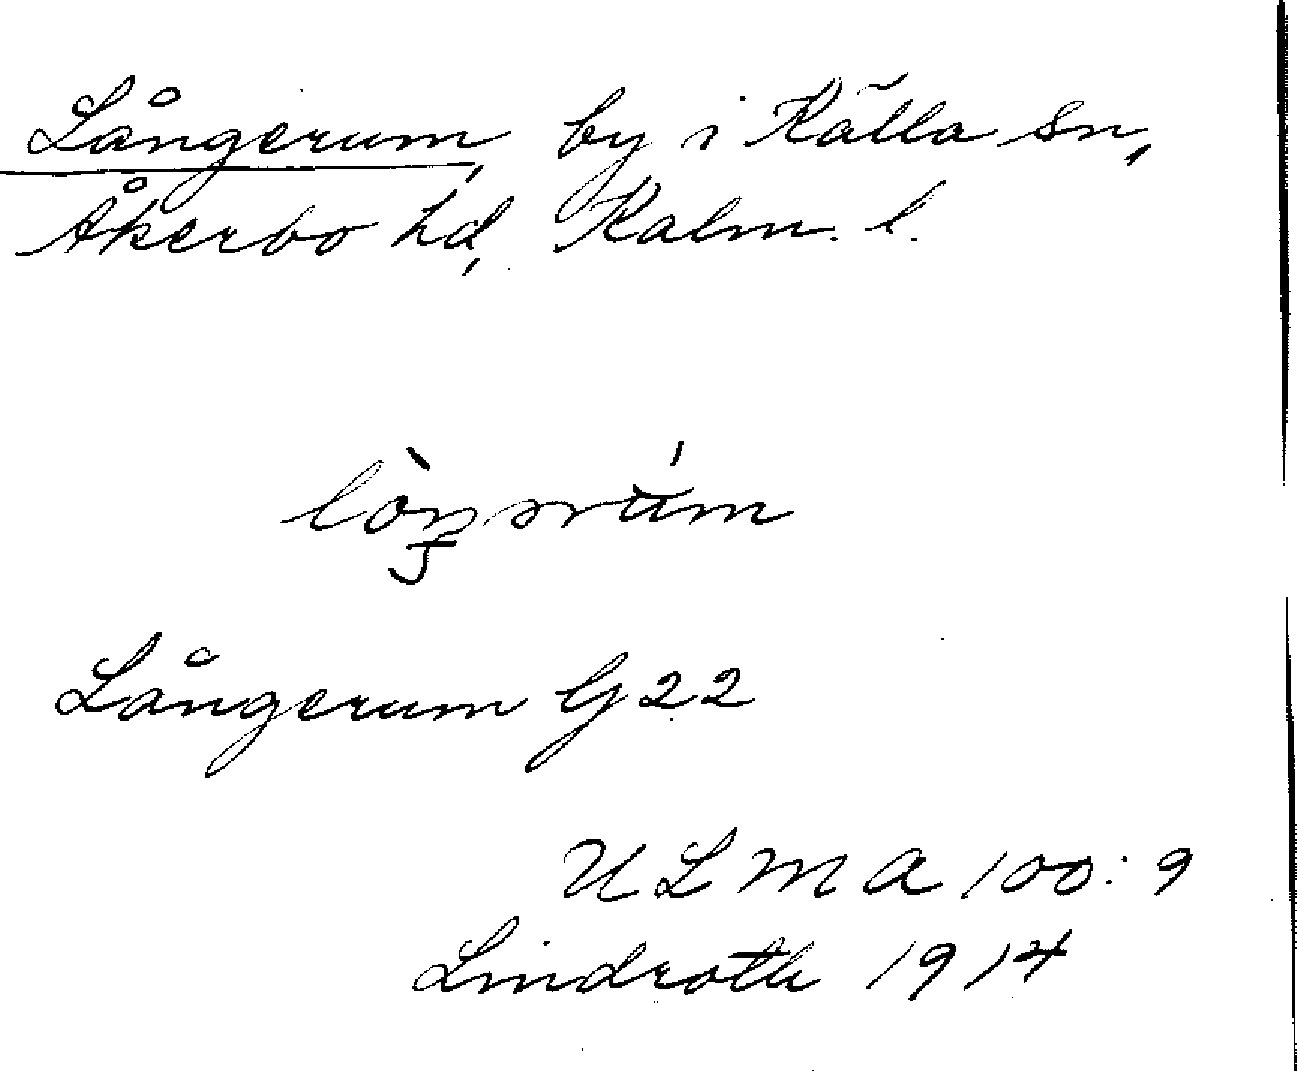 Långerum, by i Källa sn,
Åkerbo hd, Kalm. l.
Långerum G 22
ULMA 100:9
Lindroth 1914